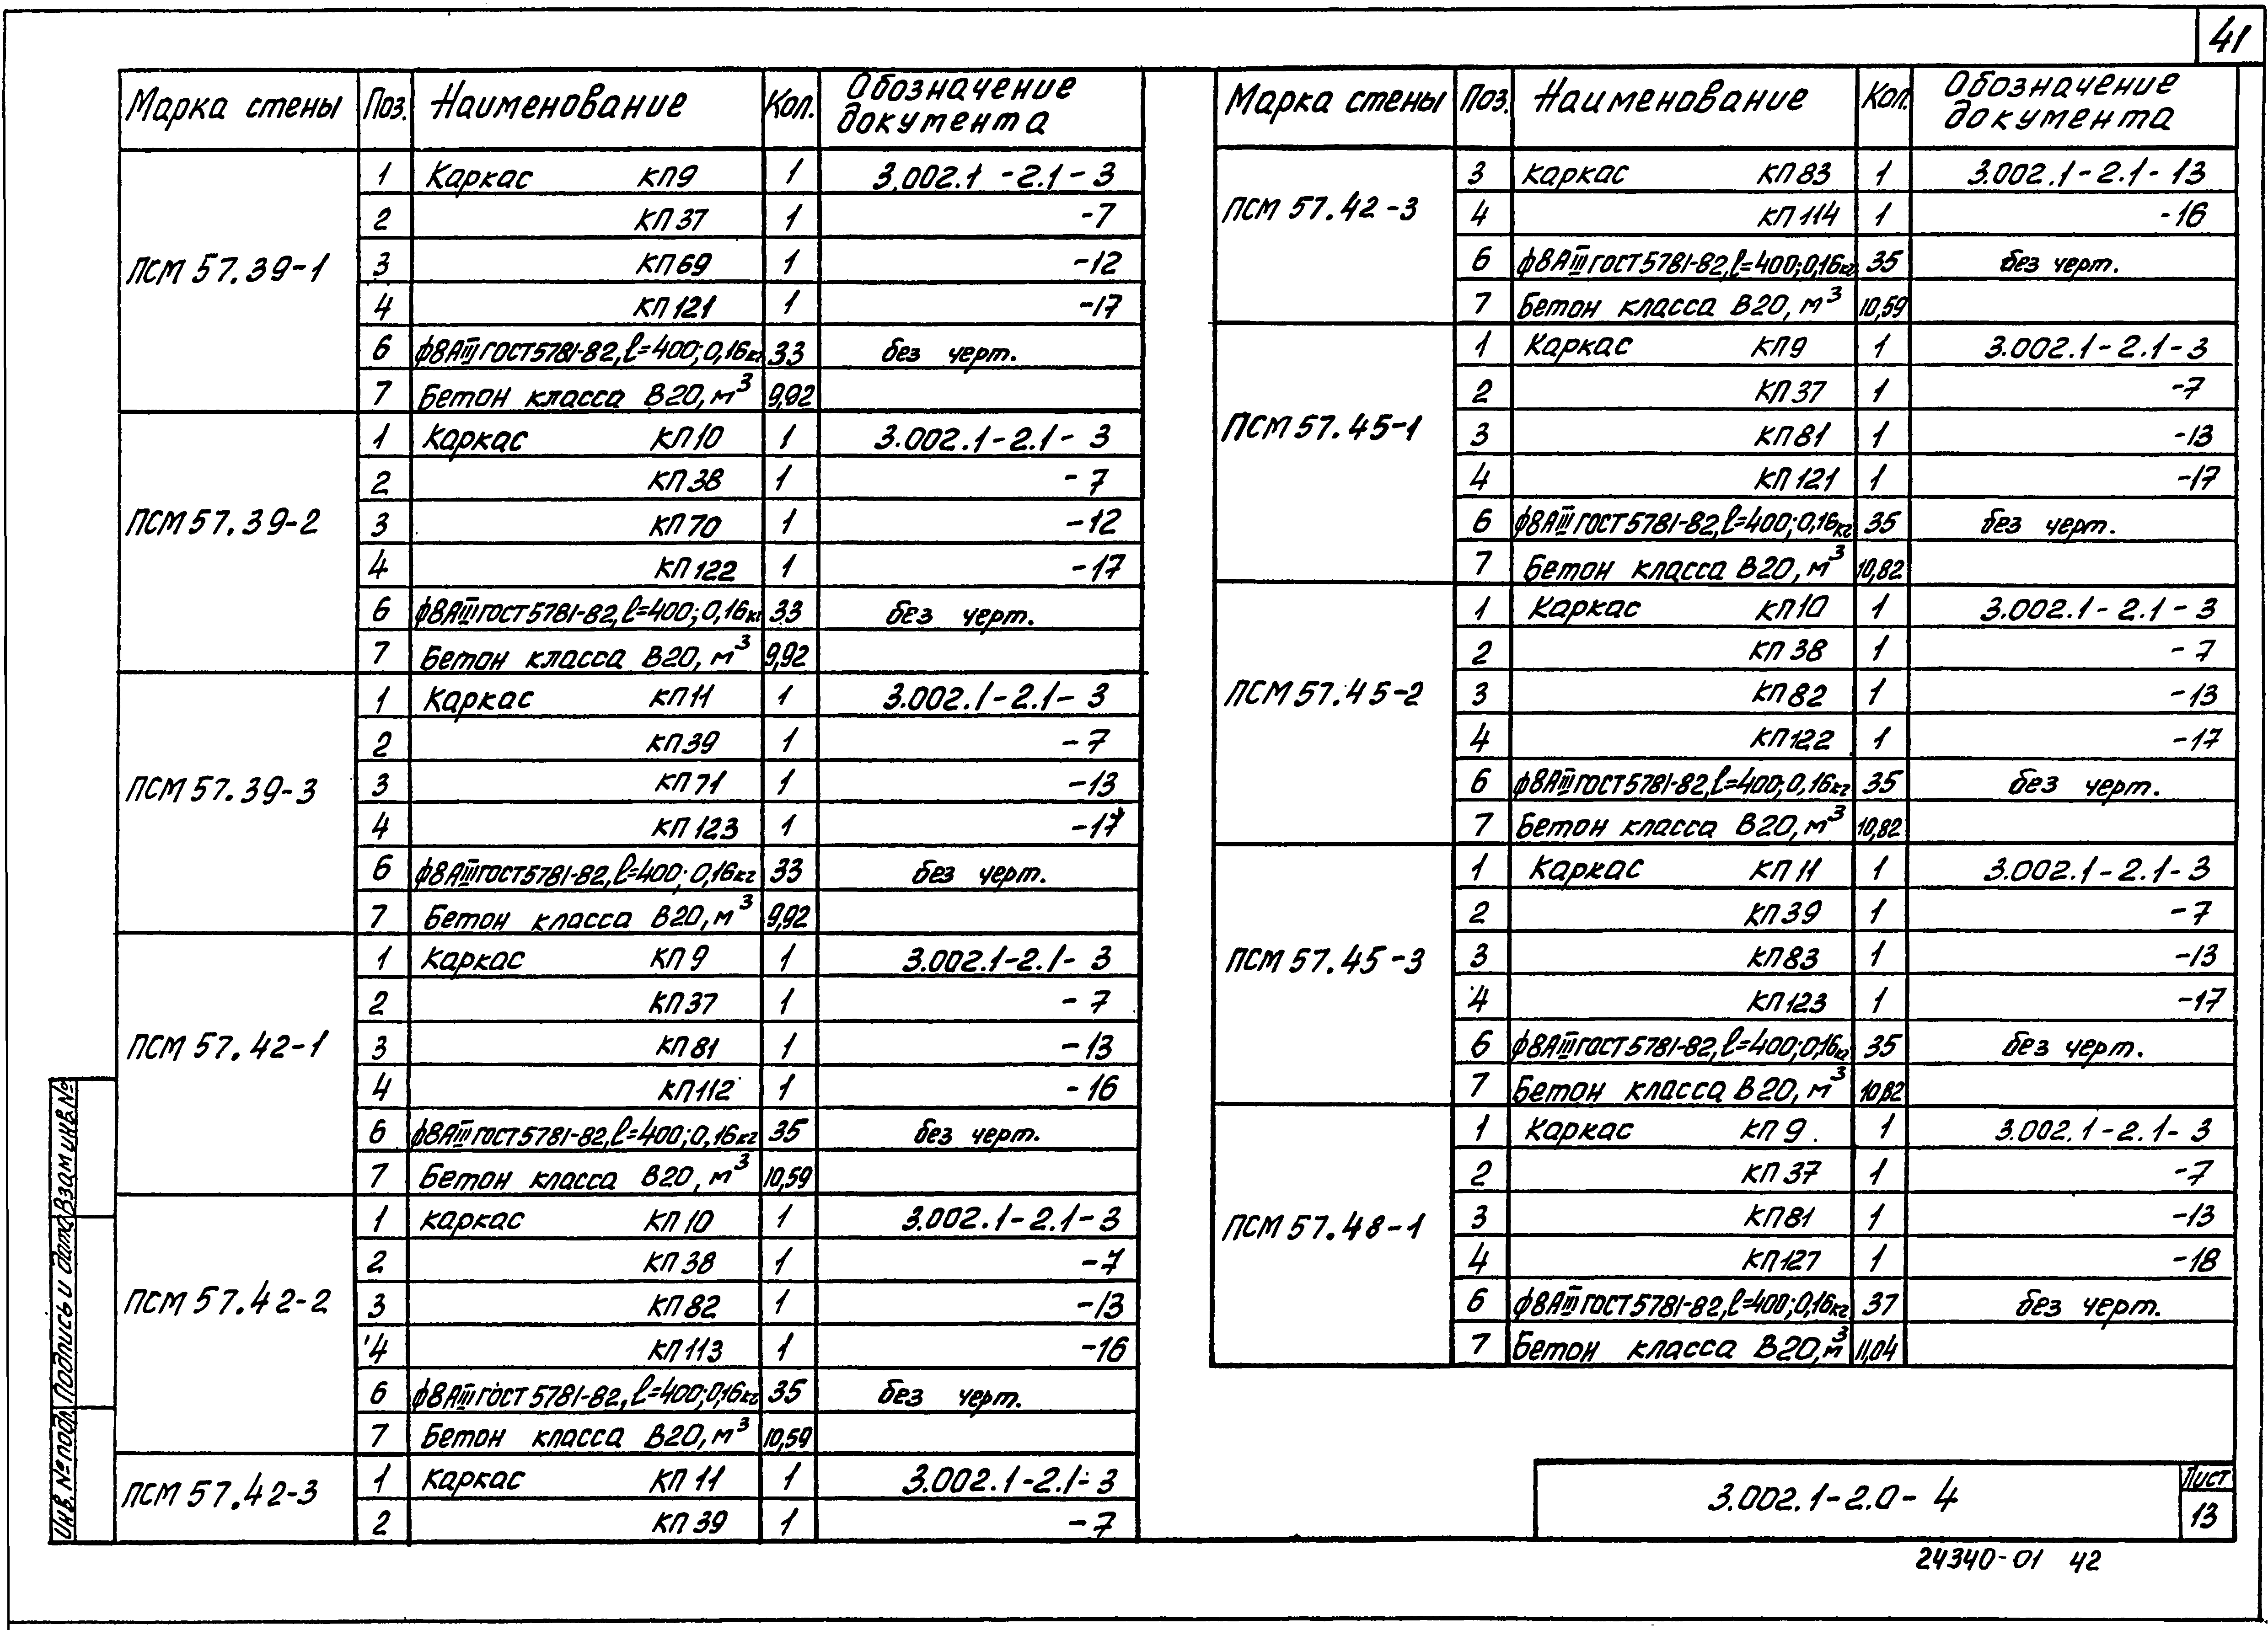 41
Марка стены Поз. Наименование Кол. Обозначение документа
ПСМ 57.39-1
1 Каркас КП9 1 3.002.1-2.1-3
2 КП37 1 -7
3 КП69 1 -12
4 КП121 1 -17
6 ф8АIII ГОСТ5781-82, l=400; 0,16кг 33 без черт.
7 Бетон класса В20, м³ 9,92
ПСМ 57.39-2
1 Каркас КП10 1 3.002.1-2.1-3
2 КП38 1 -7
3 КП70 1 -12
4 КП122 1 -17
6 ф8АIII ГОСТ5781-82, l=400; 0,16кг 33 без черт.
7 Бетон класса В20, м³ 9,92
ПСМ 57.39-3
1 Каркас КП11 1 3.002.1-2.1-3
2 КП39 1 -7
3 КП71 1 -13
4 КП123 1 -17
6 ф8АIII ГОСТ5781-82, l=400; 0,16кг 33 без черт.
7 Бетон класса В20, м³ 9,92
ПСМ 57.42-1
1 Каркас КП9 1 3.002.1-2.1-3
2 КП37 1 -7
3 КП81 1 -13
4 КП112 1 -16
6 ф8АIII ГОСТ5781-82, l=400; 0,16кг 35 без черт.
7 Бетон класса В20, м³ 10,59
ПСМ 57.42-2
1 Каркас КП10 1 3.002.1-2.1-3
2 КП38 1 -7
3 КП82 1 -13
4 КП113 1 -16
6 ф8АIII ГОСТ5781-82, l=400; 0,16кг 35 без черт.
7 Бетон класса В20, м³ 10,59
ПСМ 57.42-3
1 Каркас КП11 1 3.002.1-2.1-3
2 КП39 1 -7
Марка стены Поз. Наименование Кол. Обозначение документа
ПСМ 57.42-3
3 Каркас КП83 1 3.002.1-2.1-13
4 КП114 1 -16
6 ф8АIII ГОСТ5781-82, l=400; 0,16кг 35 без черт.
7 Бетон класса В20, м³ 10,59
ПСМ 57.45-1
1 Каркас КП9 1 3.002.1-2.1-3
2 КП37 1 -7
3 КП81 1 -13
4 КП121 1 -17
6 ф8АIII ГОСТ5781-82, l=400; 0,16кг 35 без черт.
7 Бетон класса В20, м³ 10,82
ПСМ 57.45-2
1 Каркас КП10 1 3.002.1-2.1-3
2 КП38 1 -7
3 КП82 1 -13
4 КП122 1 -17
6 ф8АIII ГОСТ5781-82, l=400; 0,16кг 35 без черт.
7 Бетон класса В20, м³ 10,82
ПСМ 57.45-3
1 Каркас КП11 1 3.002.1-2.1-3
2 КП39 1 -7
3 КП83 1 -13
4 КП123 1 -17
6 ф8АIII ГОСТ5781-82, l=400; 0,16кг 35 без черт.
7 Бетон класса В20, м³ 10,82
ПСМ 57.48-1
1 Каркас КП9 1 3.002.1-2.1-3
2 КП37 1 -7
3 КП81 1 -13
4 КП127 1 -18
6 ф8АIII ГОСТ5781-82, l=400; 0,16кг 37 без черт.
7 Бетон класса В20, м³ 11,04
Инв. № подл. Подпись и дата Взам инв. №
3.002.1-2.0-4
Лист
13
24340-01 42